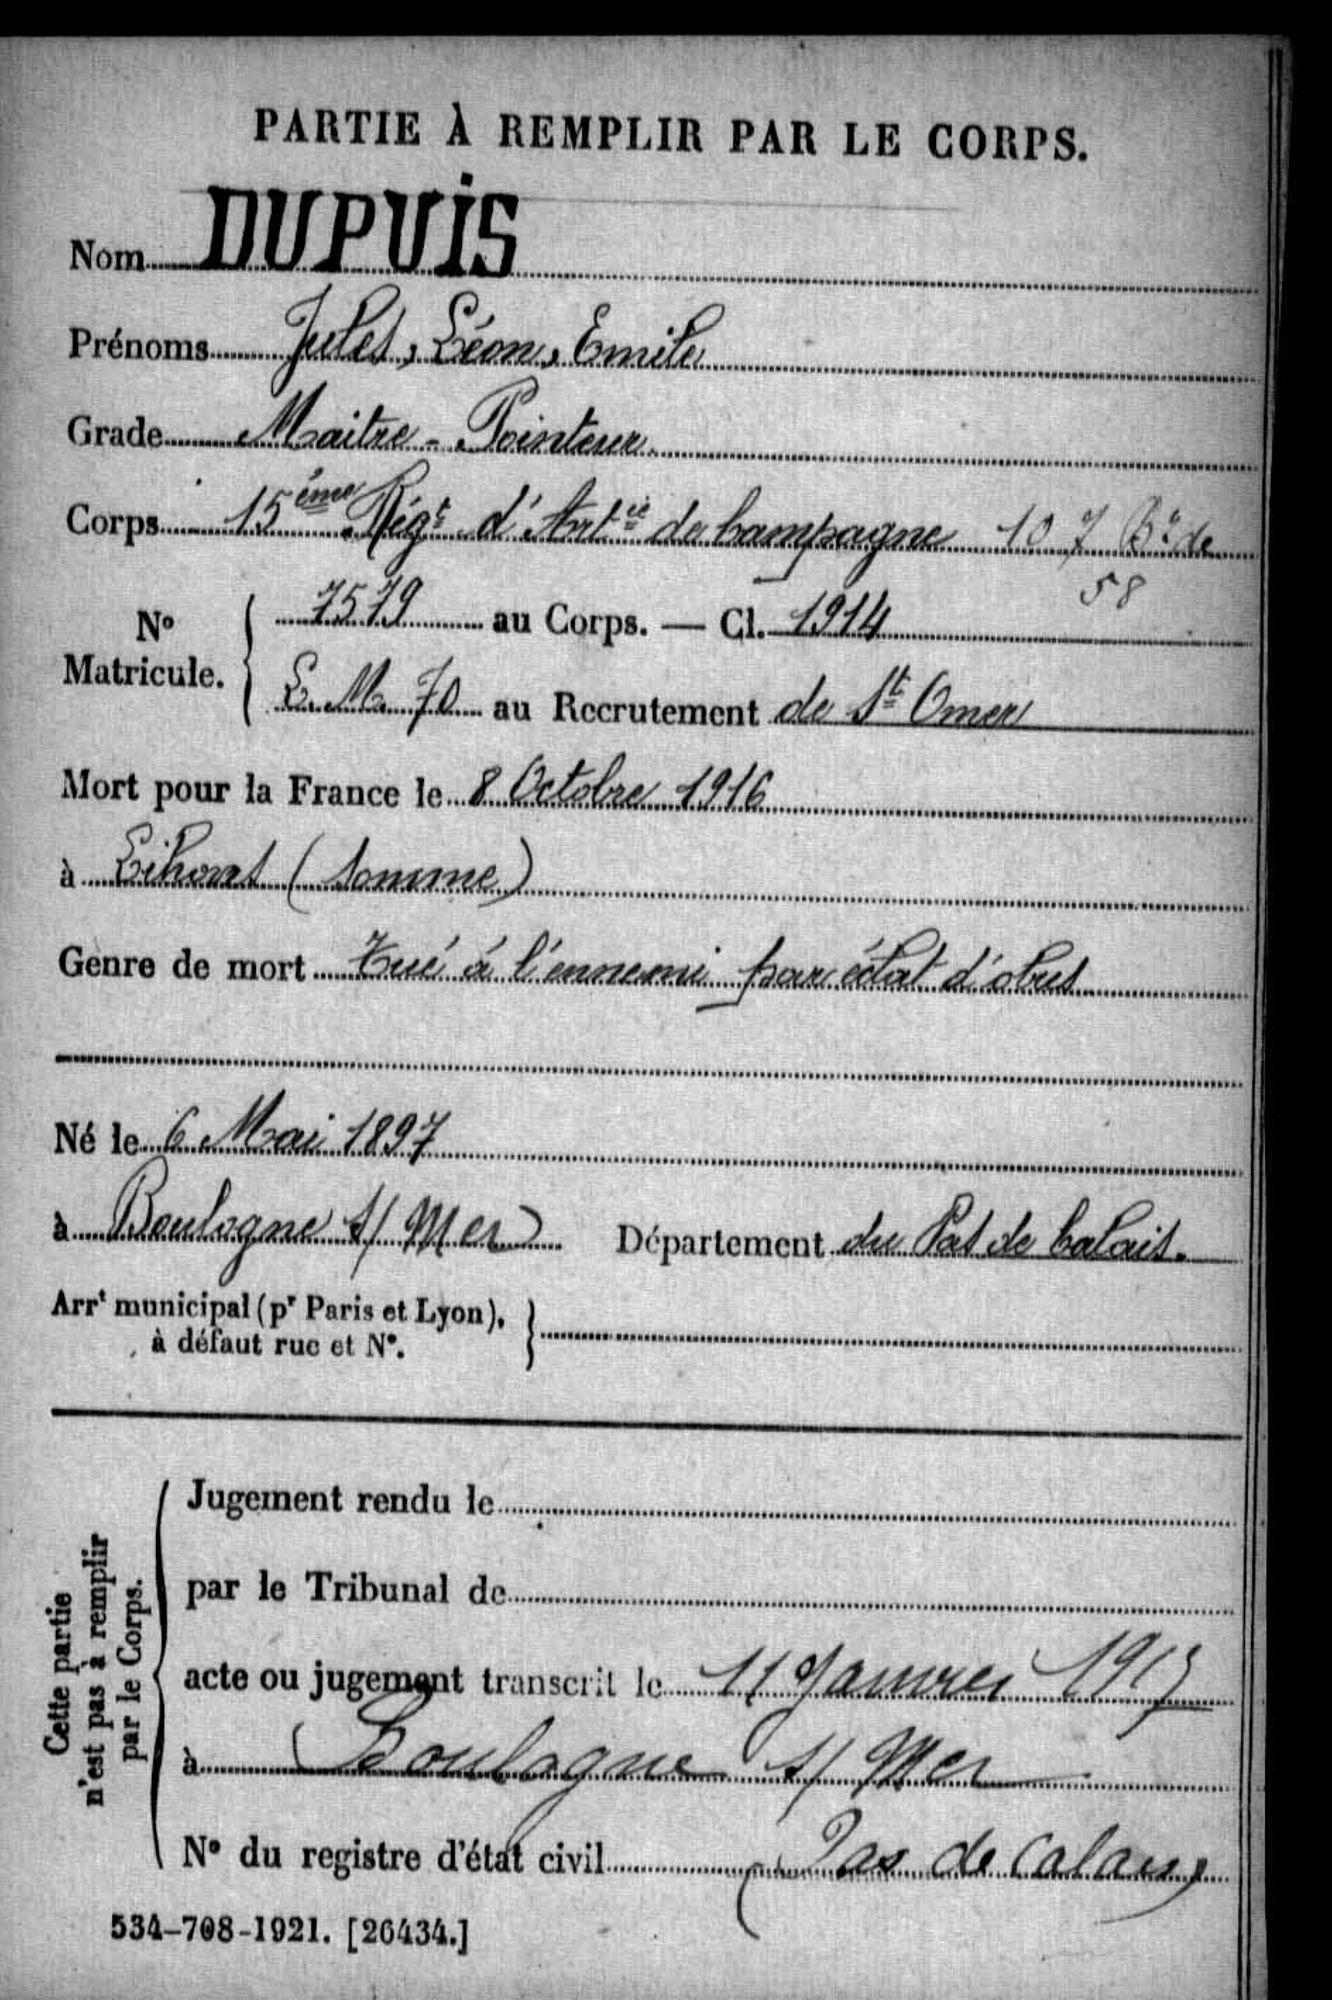 PARTIE À REMPLIR PAR LE CORPS.
Nom DUPUIS
Prénoms Jules, Léon, Emile
Grade Maitre-Pointeur
Corps 15ème Régt d'Artie de Campagne 107 Bie de
58
No Matricule. { 7579 au Corps. — Cl. 1914
E. M. 70 au Recrutement de St Omer
Mort pour la France le 8 Octobre 1916
à Lihons (Somme)
Genre de mort Tué à l'ennemi par éclat d'obus
Né le 6 Mai 1897
à Boulogne s/ Mer Département du Pas de Calais.
Arrt municipal (pr Paris et Lyon),
à défaut rue et No.
Cette partie n'est pas à remplir par le Corps.
Jugement rendu le
par le Tribunal de
acte ou jugement transcrit le 11 Janvier 1917
à Boulogne s/ Mer
No du registre d'état civil (Pas de Calais)
534-708-1921. [26434.]